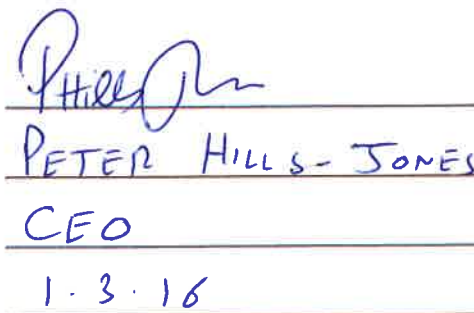 PETER HILLS-JONES
CEO
1.3.16